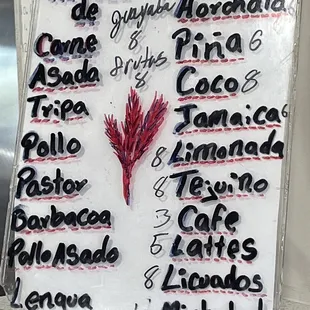 de
Carne
Asada
Tripa
Pollo
Pastor
Barbacoa
Pollo Asado
Lengua
guayaba
8
frutas
8
Horchata
Piña 6
Coco 8
Jamaica 6
8 Limonada
8 Tejuino
3 Cafe
5 Lattes
8 Licuados